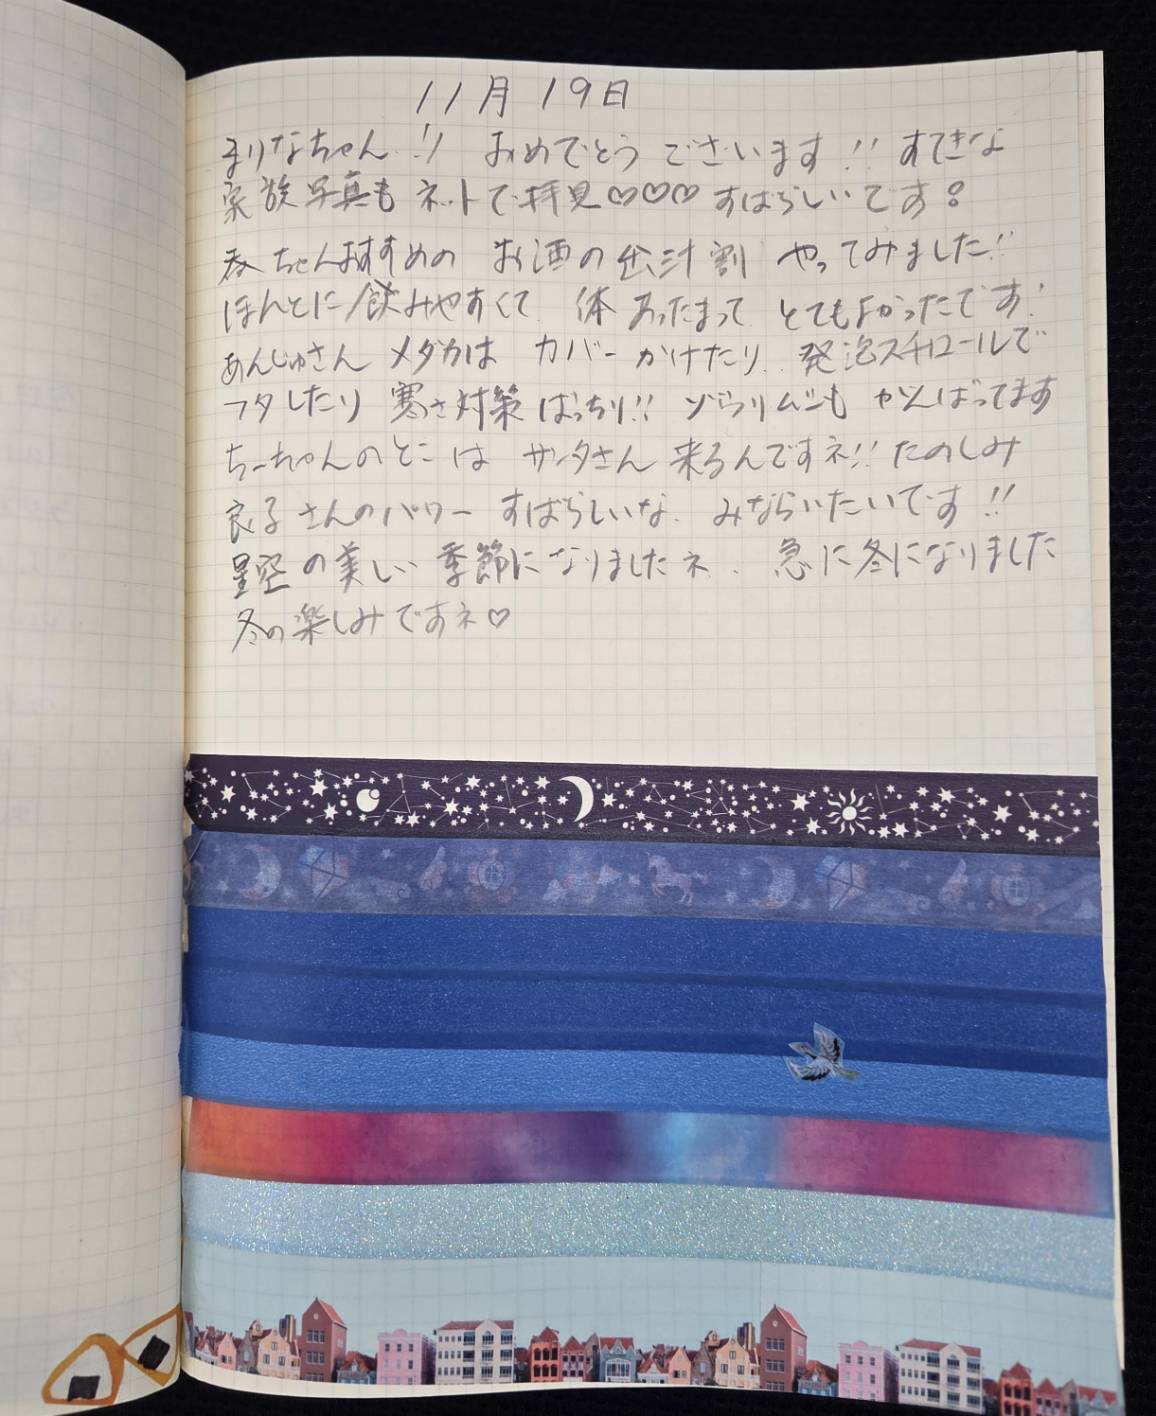 11月19日
まりなちゃん!! おめでとうございます!! すてきな
家族写真も ネットで拝見♡♡♡ すばらしいです!
春ちゃんおすすめの お酒の出汁割 やってみました!!
ほんとに飲みやすくて 体あったまって とてもよかったです!
あんじゅさん メダカは カバーかけたり. 発泡スチロールで
フタしたり 寒さ対策 ばっちり!! ゾウリムシも がんばってます
ちーちゃんのとこは サンタさん 来るんですネ!! たのしみ
良子さんのパワー すばらしいな. みならいたいです!!
星空の美しい季節になりましたネ. 急に冬になりました
冬の楽しみですネ♡